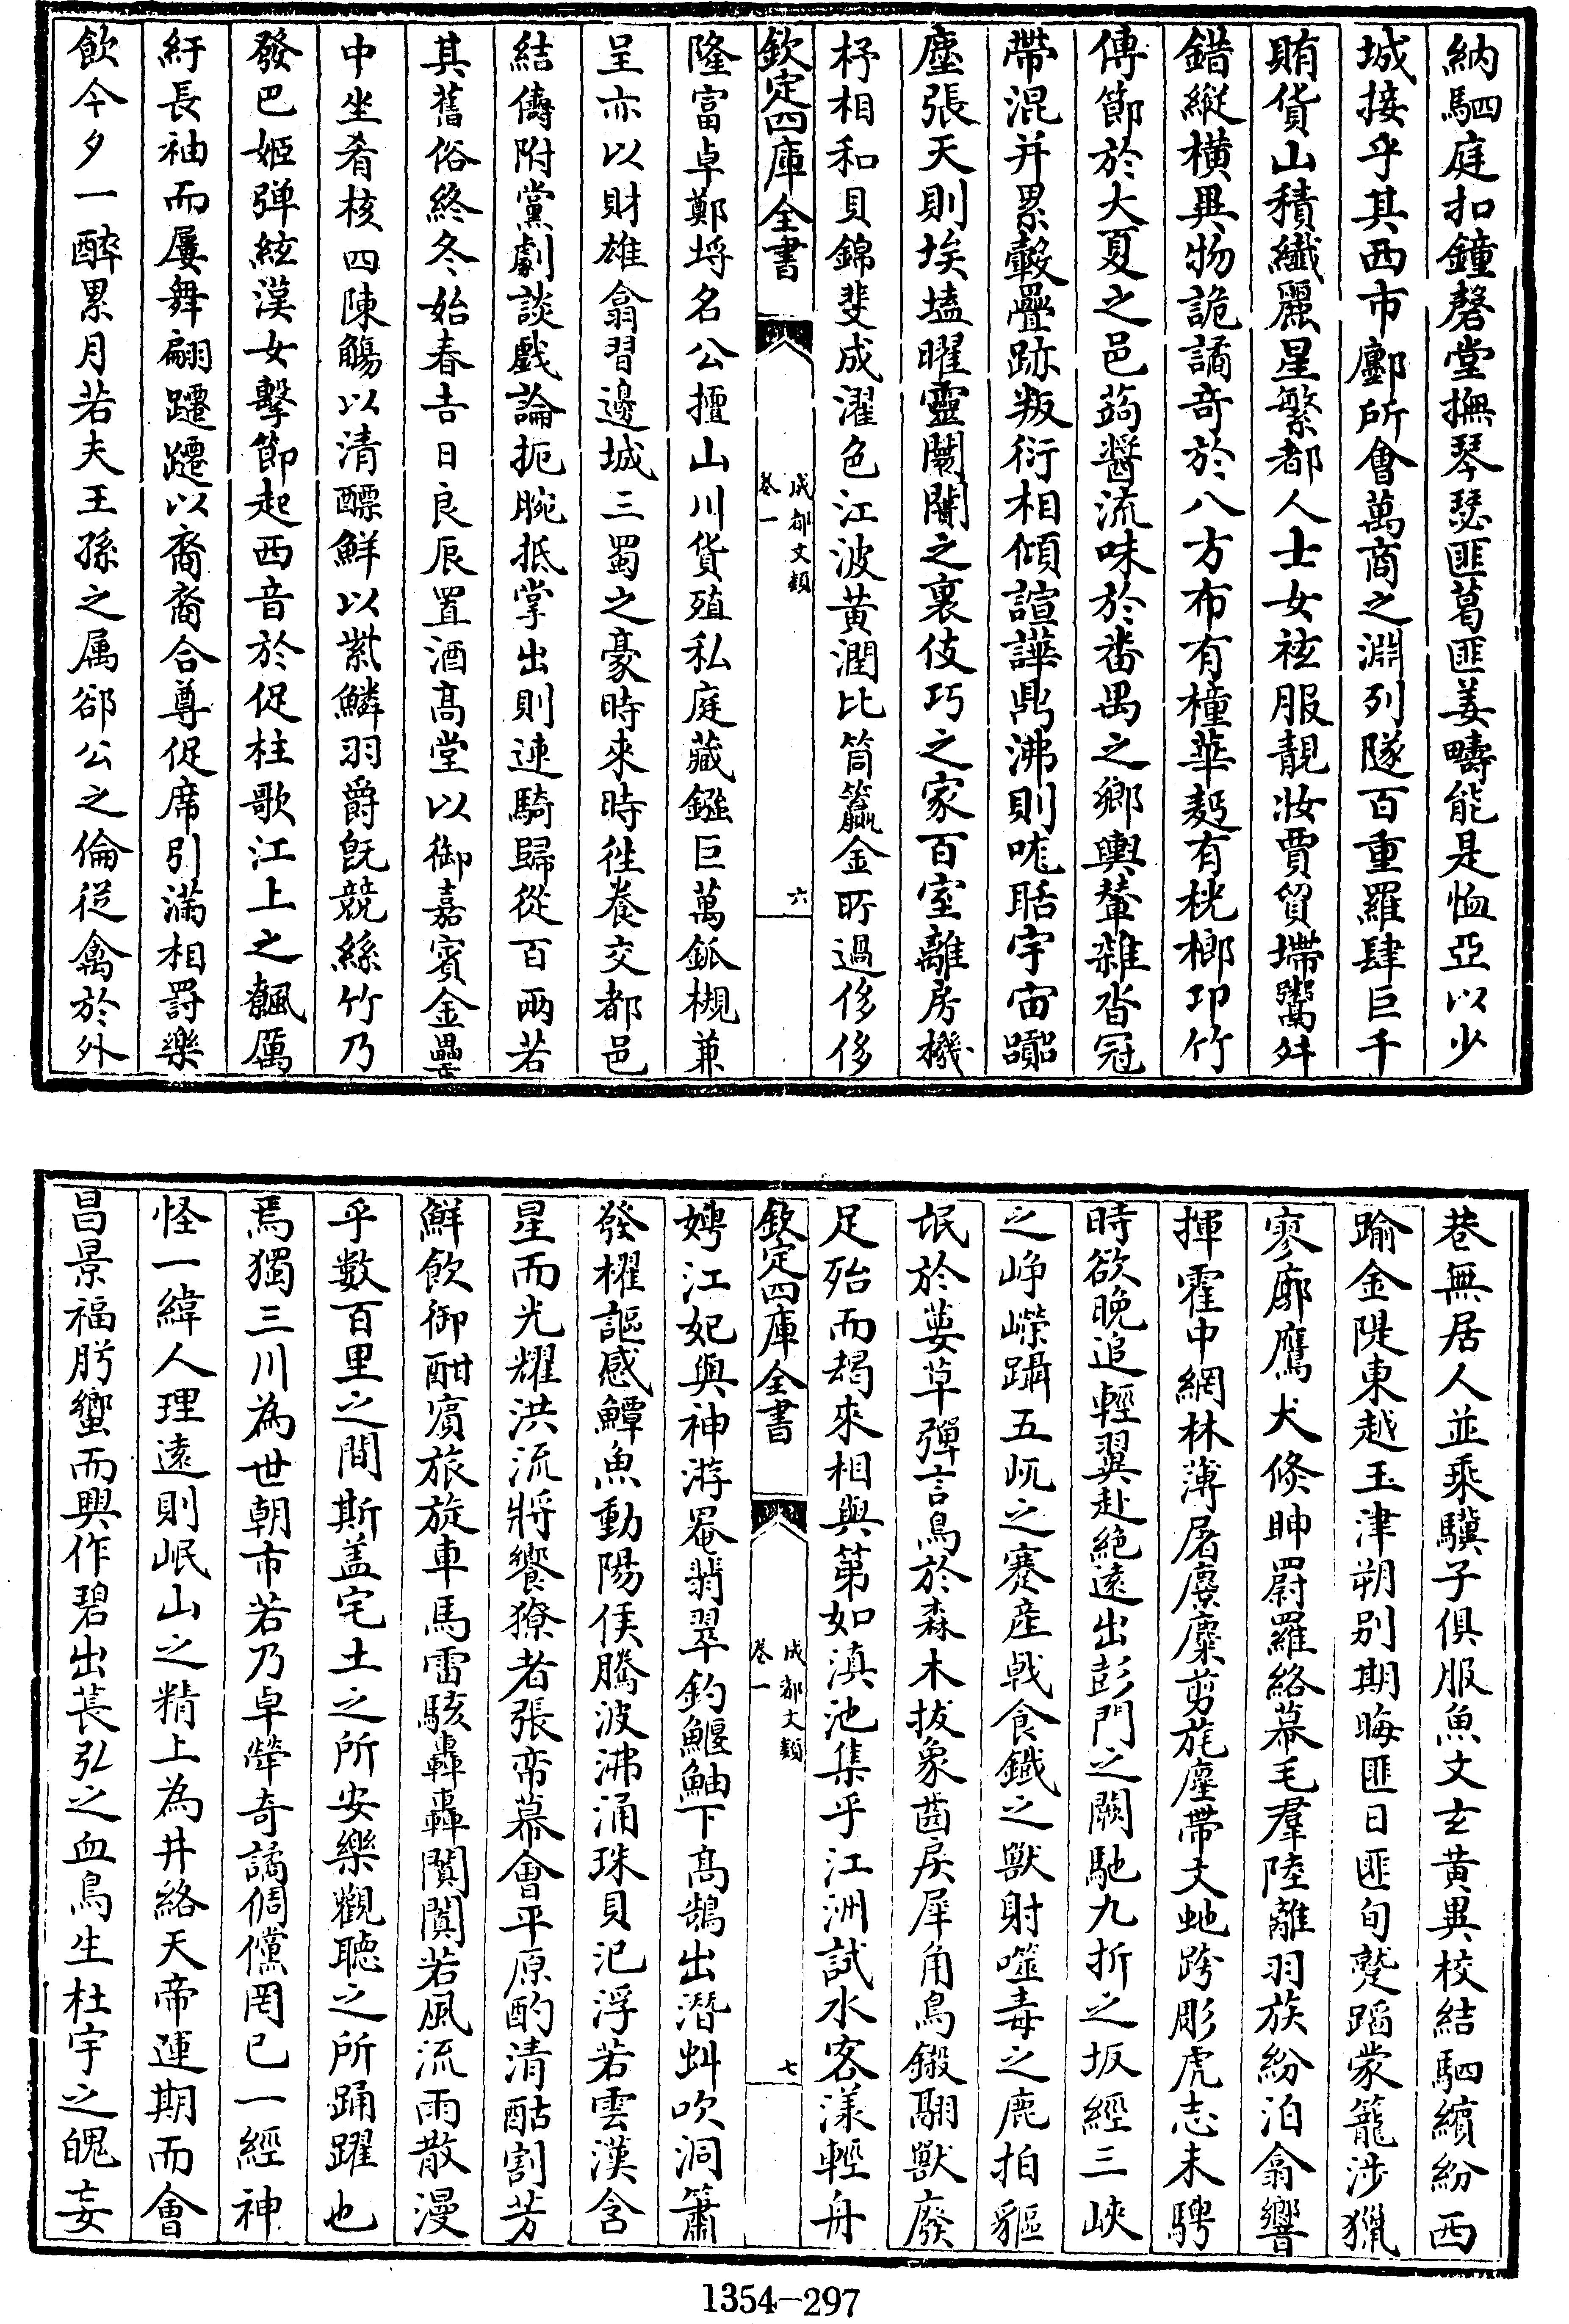 納駟庭扣鐘磬堂撫琴瑟匪葛匪姜疇能是恤亞以少
城接乎其西市鄽所會萬商之淵列隧百重羅肆巨千
賄貨山積纎麗星繁都人士女袨服靚妝賈貿墆鬻舛
錯縱横異物詭譎奇於八方布有橦華麪有桄榔卭竹
傳節於大夏之邑蒟醬流味於番禺之鄉輿輦雜沓冠
帶混并累轂疊跡叛衍相傾諠譁鼎沸則哤聒宇宙囂
塵張天則埃壒曜靈闤闠之裏伎巧之家百室離房機
杼相和貝錦斐成濯色江波黄潤比筒籯金所過侈侈
欽定四庫全書
成都文類
卷一
六
隆富卓鄭埒名公擅山川貨殖私庭藏鏹巨萬釽槻兼
呈亦以財雄翕習邊城三蜀之豪時來時徃養交都邑
結儔附黨劇談戲論扼腕抵掌出則連騎歸從百兩若
其舊俗終冬始春吉日良辰置酒髙堂以御嘉賓金罍
中坐肴核四陳觴以清醥鮮以紫鱗羽爵旣競絲竹乃
發巴姬彈絃漢女擊節起西音於促柱歌江上之飇厲
紆長袖而屢舞翩躚躚以裔裔合尊促席引滿相罸樂
飲今夕一醉累月若夫王孫之属郤公之倫從禽於外
巷無居人並乘驥子俱服魚文玄黄異校結駟繽紛西
踰金隄東越玉津朔别期晦匪日匪旬蹵蹈蒙籠渉獵
寥廓鷹犬倐眒罻羅絡幕毛羣陸離羽族紛泊翕響
揮霍中網林薄屠麖麋剪旄塵帶文虵跨彫虎志未騁
時欲晩追輕翼赴絶遠出彭門之闕馳九折之坂經三峽
之崢嶸躡五屼之蹇産戟食鐡之獸射噬毒之鹿拍貙
氓於葽草彈言鳥於森木拔象齒戾犀角鳥鎩翮獸廢
足殆而朅來相與第如滇池集乎江洲試水客漾輕舟
欽定四庫全書
成都文類
卷一
七
娉江妃與神游罨翡翠釣鰋鮋下髙鵠出潛虯吹洞簫
發櫂謳感鱏魚動陽侯騰波沸涌珠貝氾浮若雲漢含
星而光耀洪流將饗獠者張帟幕會平原酌清酤割芳
鮮飲御酣賓旅旋車馬雷駭轟轟闐闐若風流雨散漫
乎數百里之間斯盖宅土之所安樂觀聽之所踊躍也
焉獨三川為世朝市若乃卓犖奇譎倜儻罔已一經神
怪一緯人理遠則岷山之精上為井絡天帝運期而會
昌景福肹蠁而興作碧出萇弘之血鳥生杜宇之魄妄
1354-297